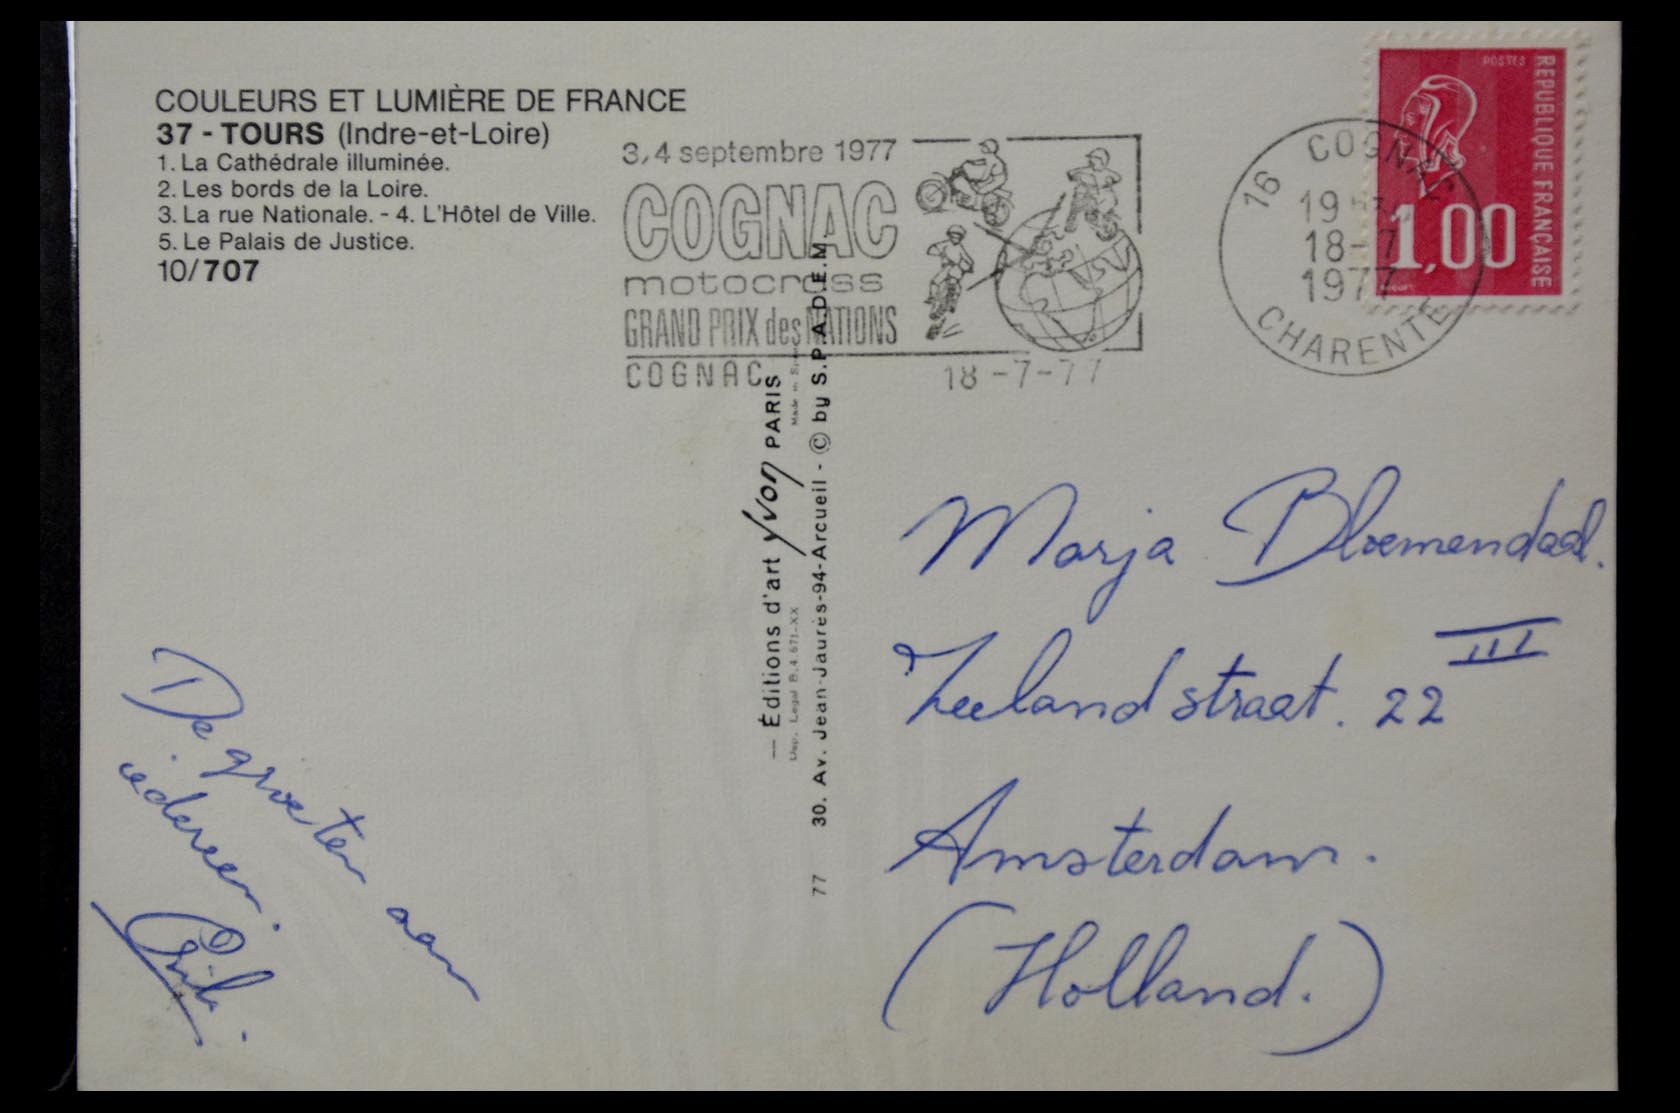 COULEURS ET LUMIÈRE DE FRANCE
37 - TOURS (Indre-et-Loire)
1. La Cathédrale illuminée.
2. Les bords de la Loire.
3. La rue Nationale. - 4. L'Hôtel de Ville.
5. Le Palais de Justice.
10/707
3,4 septembre 1977
COGNAC
motocross
GRAND PRIX des NATIONS
COGNAC 18-7-77
16 COGNAC
19
18-7
1977
CHARENTE
POSTES
REPUBLIQUE FRANÇAISE
1,00
— Éditions d'art yvon PARIS
Dép. Légal B.4.671-XX Made in
77 30. Av. Jean-Jaurès-94-Arcueil - © by S.P.A.D.E.M.
De groeten aan
iedereen.
Marja Bloemendaal.
Zeelandstraat. 22 III
Amsterdam.
(Holland.)